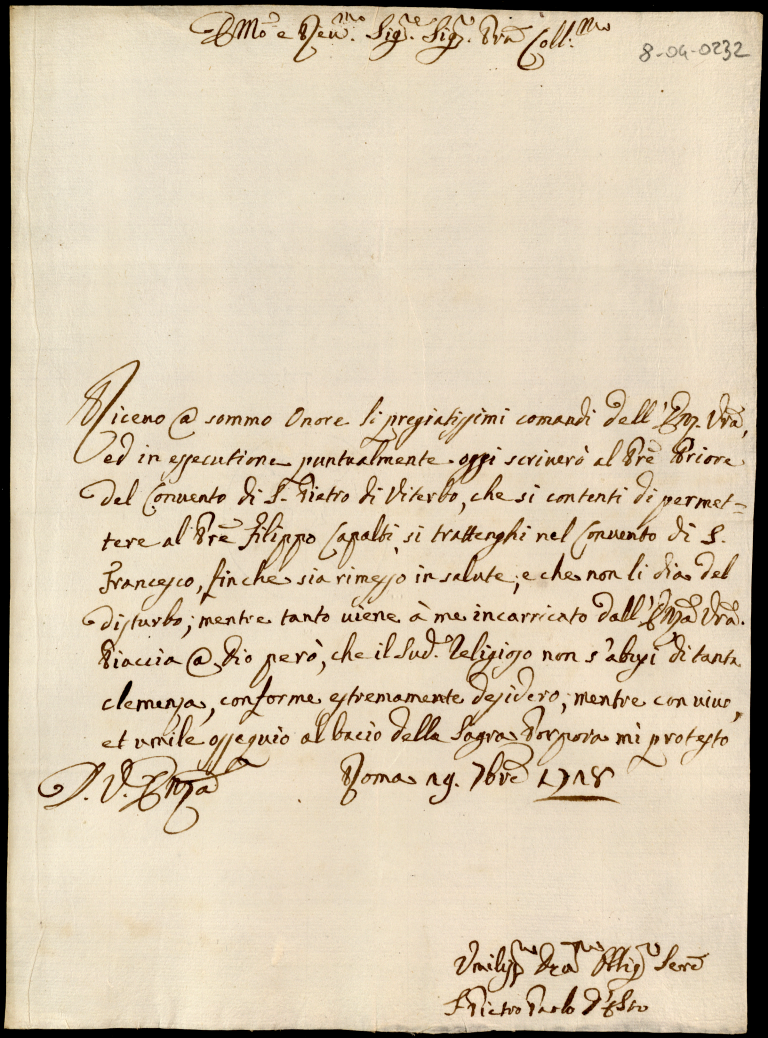 Emo e Reu.mo Sig.re Sig.r Prõn Coll.mo
8-04-0232
Riceuo @ sommo Onore li pregiatissimi comandi dell'Em̃. Vrã,
ed in essecutione puntualmente oggi scriuerò al Prẽ Priore
del Conuento di S. Pietro di Viterbo, che si contenti di permet=
tere al Prẽ Filippo Capalbi, si trattenghi nel Conuento di S.
Francesco, finche sia rimesso in salute; e che non li dia del
disturbo; mentre tanto uiene à me incarricato dall'Em̃a Vrã.
Piaccia @ Dio però, che il Sud.o Religioso non s'abusi di tanta
clemenza, conforme estremamente desidero; mentre con uiuo,
et umile ossequio al bacio della Sagra Porpora mi protesto
D. V. Em̃a
Roma 19. 7brẽ 1718
Vmiliss.mo Deu.mo Obblig.mo Serũ
F Pietro Paolo